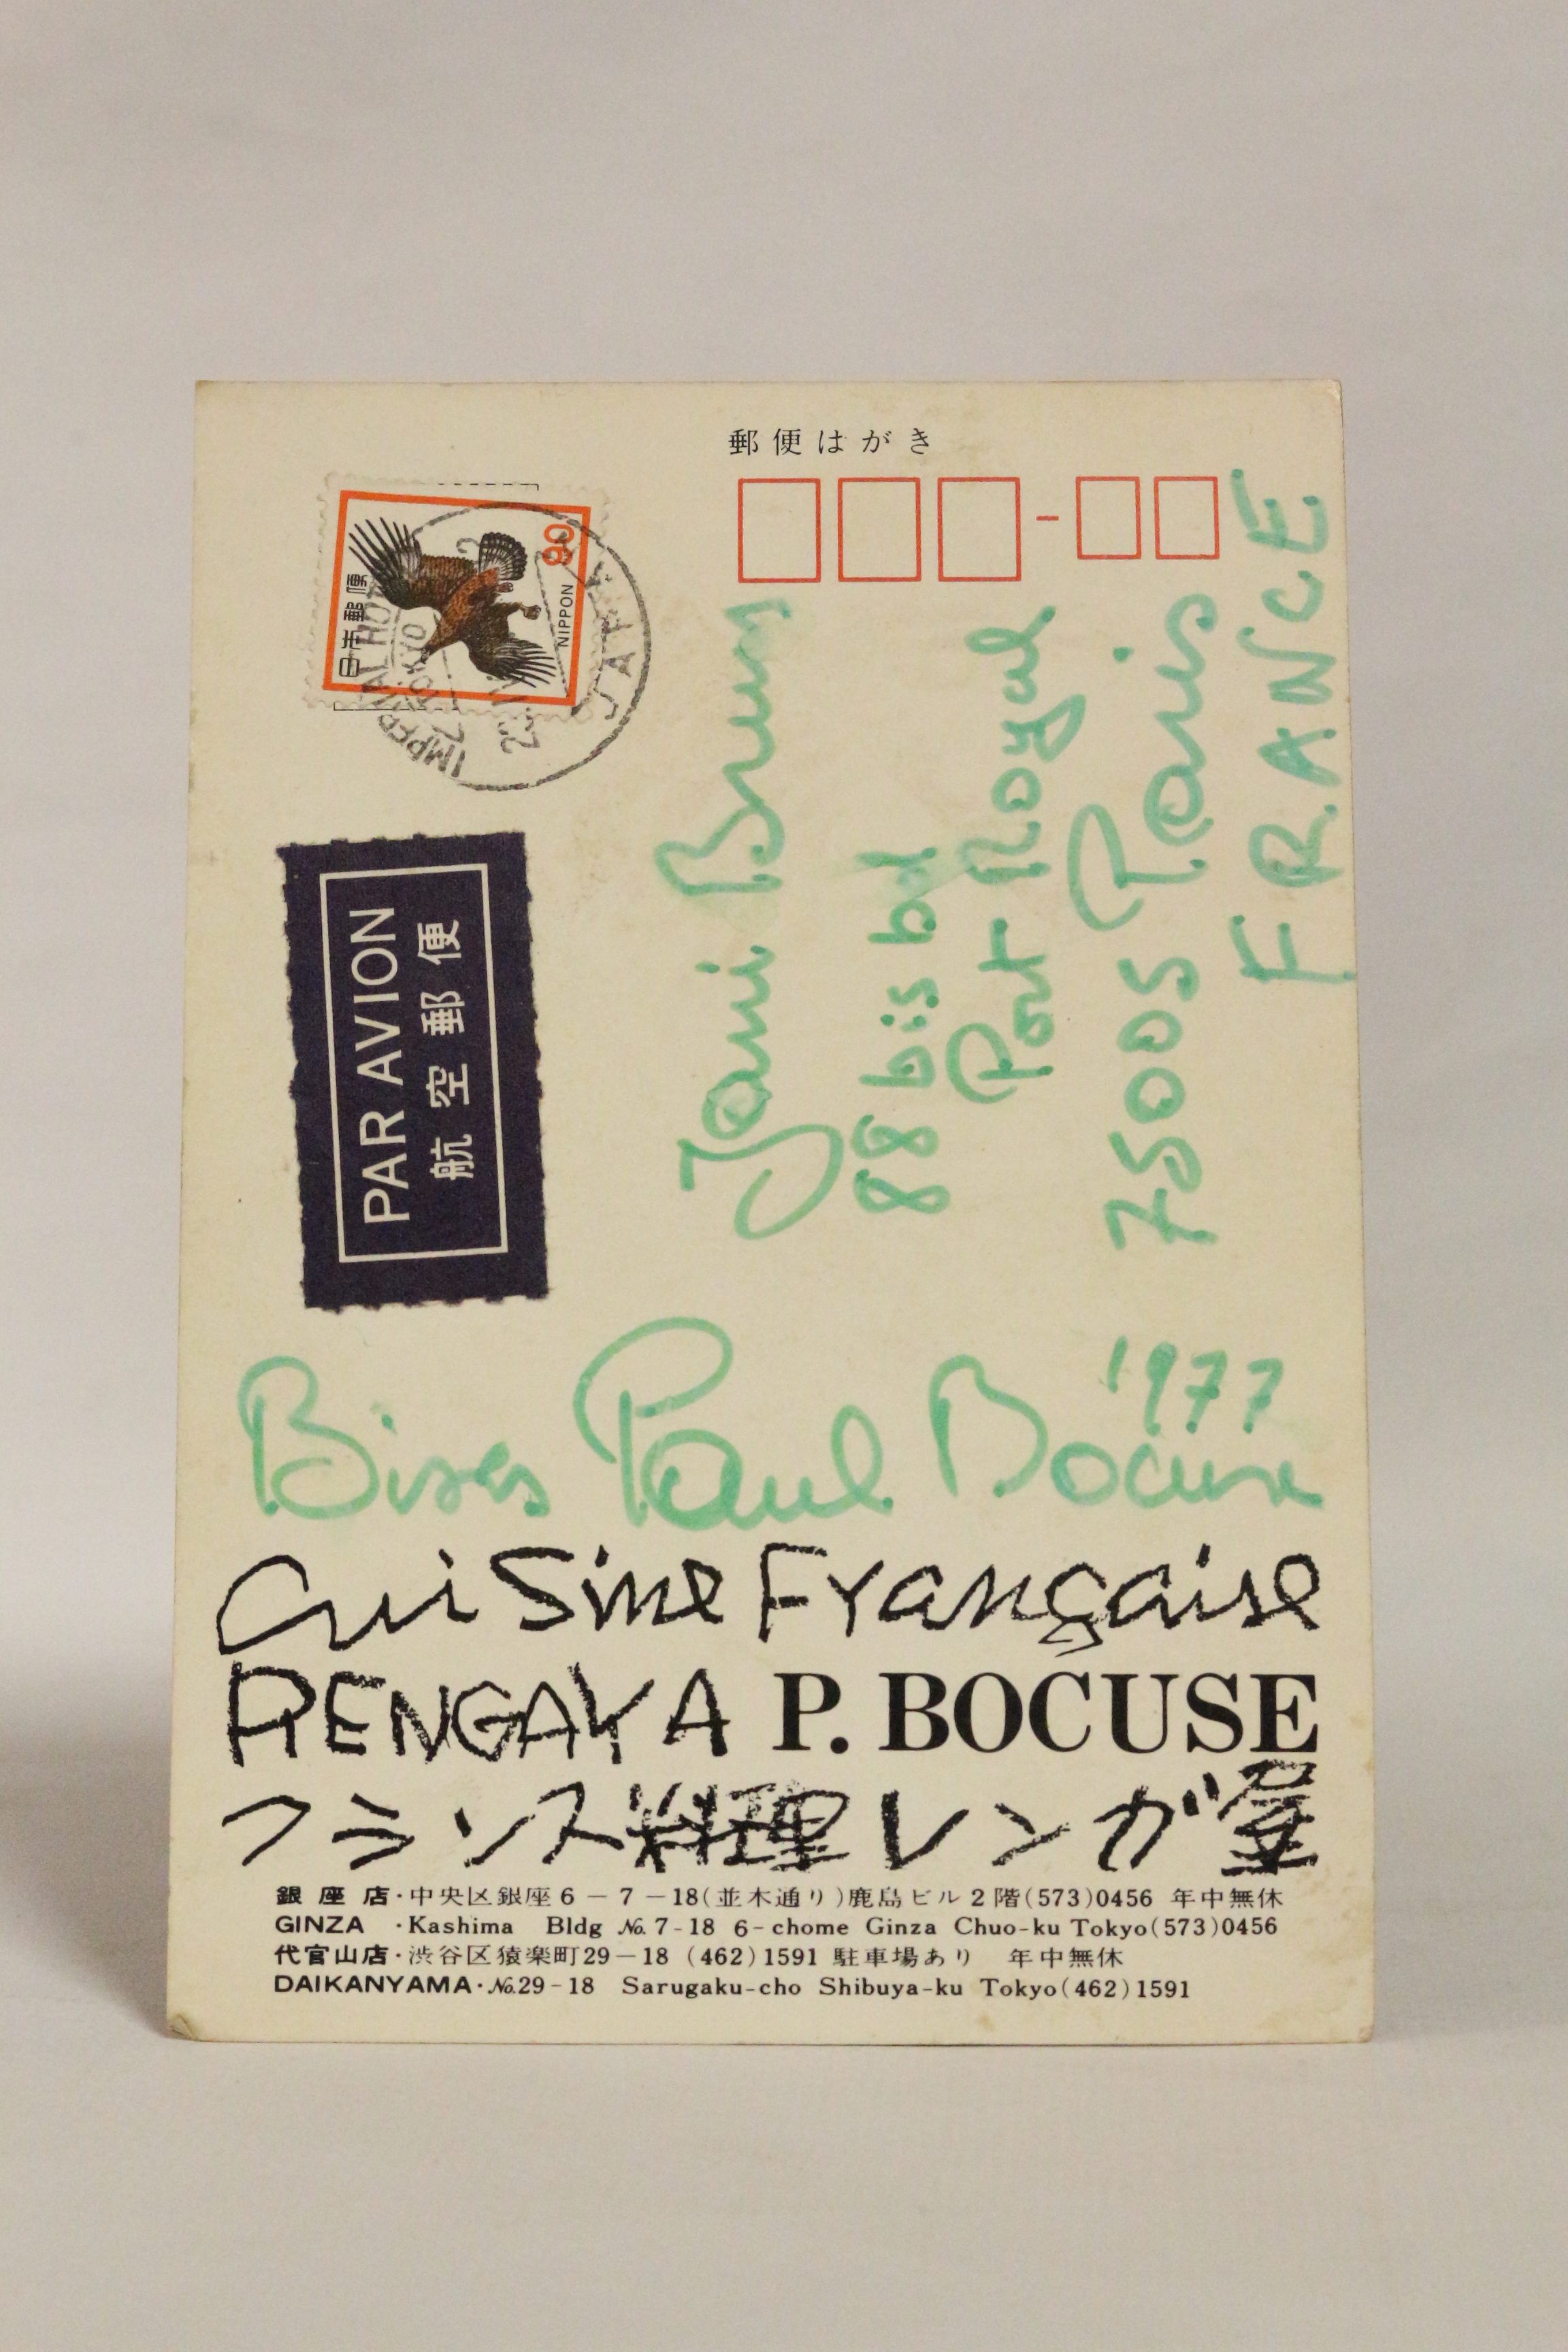 郵便はがき
90
NIPPON
日本郵便
JAPAN
PAR AVION
航空郵便
88 bis bd
Port Royal
75005 Paris
FRANCE
1977
Bises Paul Bocuse
Cuisine Française
RENGAYA P. BOCUSE
フランス料理レンガ屋
銀座店・中央区銀座6-7-18(並木通り)鹿島ビル2階(573)0456 年中無休
GINZA ・Kashima Bldg №7-18 6-chome Ginza Chuo-ku Tokyo(573)0456
代官山店・渋谷区猿楽町29-18 (462)1591 駐車場あり 年中無休
DAIKANYAMA・№29-18 Sarugaku-cho Shibuya-ku Tokyo(462)1591